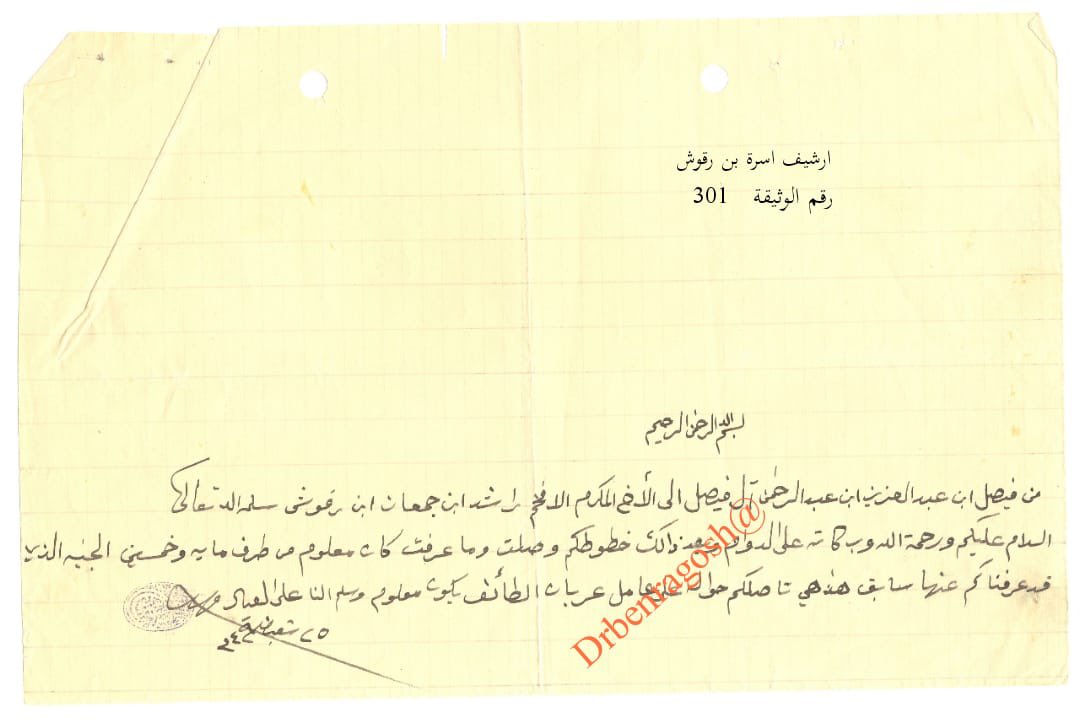 ارشيف اسرة بن رقوش
رقم الوثيقة 301
بسم الله الرحمن الرحيم
من فيصل ابن عبد العزيز ابن عبد الرحمن آل فيصل الى الأخ المكرم الافخم راشد ابن جمعان ابن رقوش سلمه الله تعالى
السلام عليكم ورحمة الله وبركاته على الدوام وبعد ذالك خطوطكم وصلت وما عرفت كان معلوم من طرف مايه وخمسين الجنيه الذي
قد عرفناكم عنها سابق هذهي تاصلكم حوالة على عامل عربان الطائف يكون معلوم وسلم لنا على العيال
٢٥ شعبان
Drbenragosh@